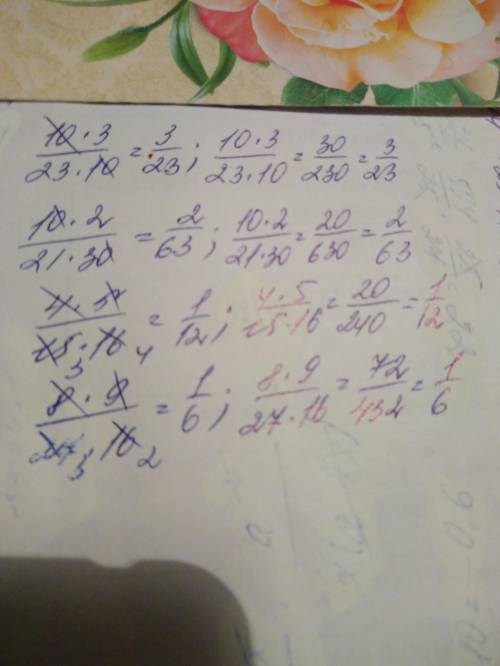 10·3/23·10 = 3/23; 10·3/23·10 = 30/230 = 3/23
10·2/21·30 = 2/63; 10·2/21·30 = 20/630 = 2/63
4·5/15 3·16 4 = 1/12; 4·5/15·16 = 20/240 = 1/12
8·9/27 3 16 2 = 1/6; 8·9/27·16 = 72/432 = 1/6